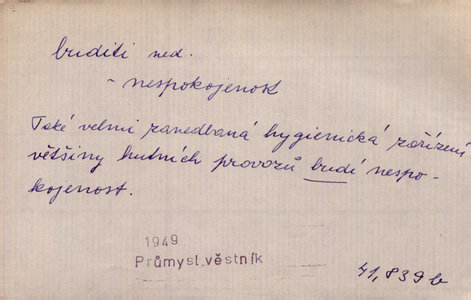 buditi ned.
- nespokojenost
Také velmi zanedbaná hygienická zařízení
většiny hutních provozů budí nespo-
kojenost.
1949
Průmysl.věstník
41,839b